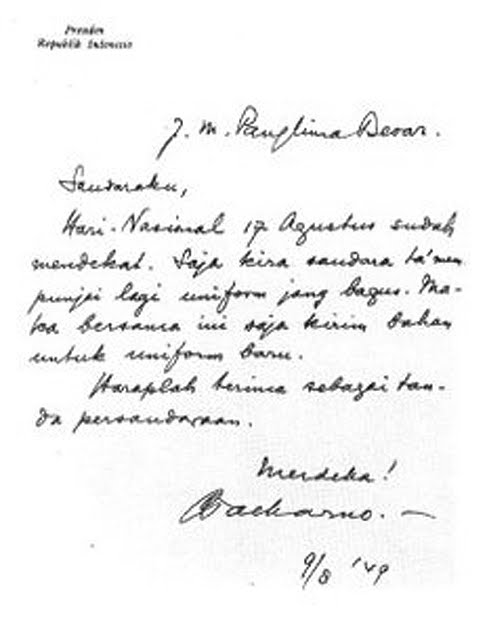 Presiden
Republik Indonesia
J. M. Panglima Besar.
Saudaraku,
Hari-Nasional 17 Agustus sudah
mendekat. Saja kira saudara ta' mem
punjai lagi uniform jang bagus. Ma-
ka bersama ini saja kirim bahan
untuk uniform baru.
Haraplah terima sebagai tan-
da persaudaraan.
Merdeka!
Soekarno. —
9/8 '49